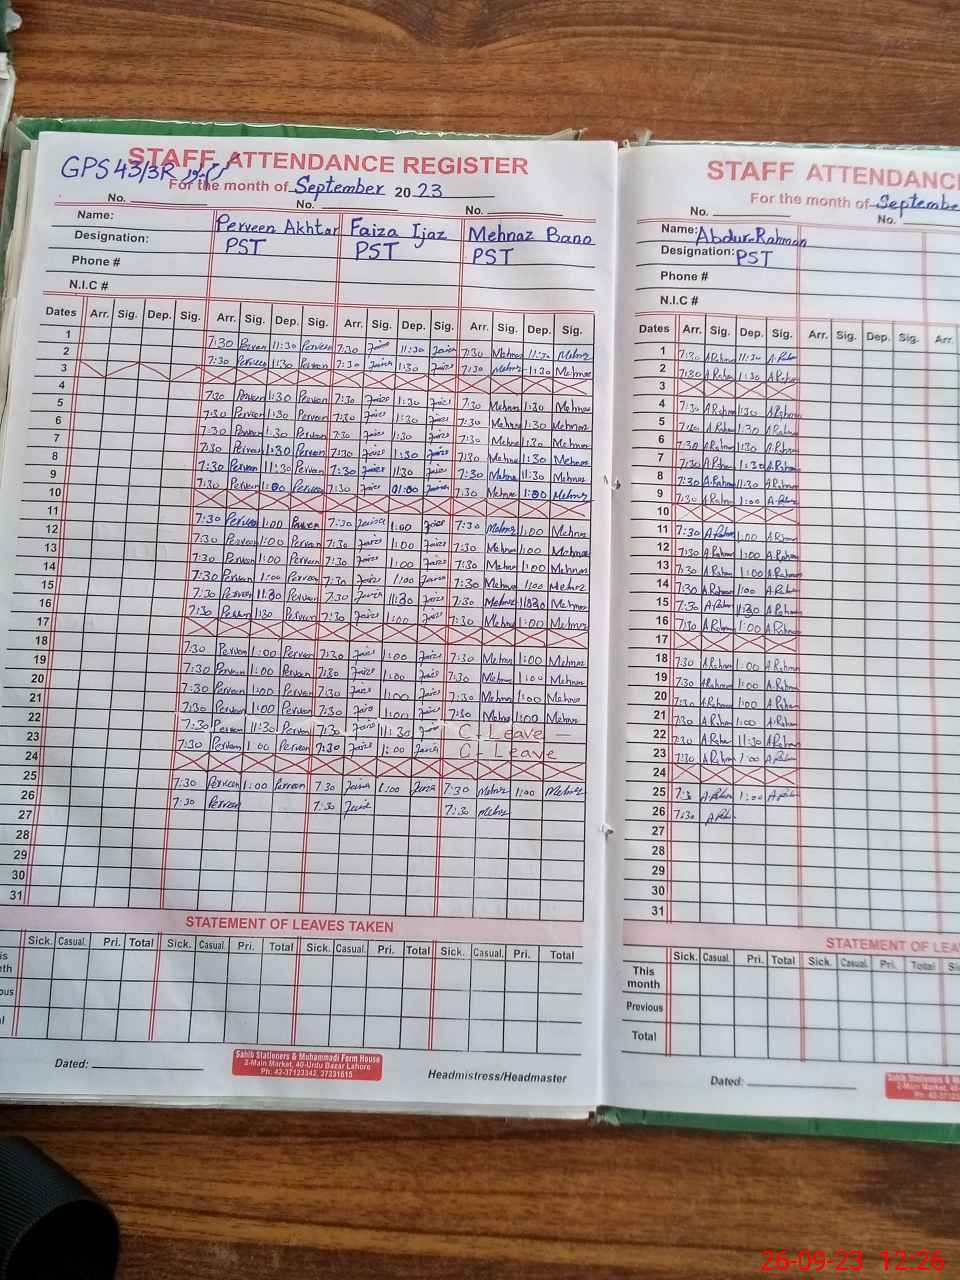 STAFF ATTENDANCE REGISTER
GPS 43/3R
For the month of September 2023
No. No. No.
Name: Perveen Akhtar Faiza Ijaz Mehnaz Bano
Designation: PST PST PST
Phone #
N.I.C #
Dates Arr. Sig. Dep. Sig. Arr. Sig. Dep. Sig. Arr. Sig. Dep. Sig. Arr. Sig. Dep. Sig.
1 7:30 Perveen 11:30 Perveen 7:30 Faiza 11:30 Faiza 7:30 Mehnaz 11:30 Mehnaz
2 7:30 Perveen 1:30 Perveen 7:30 Faiza 1:30 Faiza 7:30 Mehnaz 1:30 Mehnaz
3
4 7:30 Perveen 1:30 Perveen 7:30 Faiza 1:30 Faiza 7:30 Mehnaz 1:30 Mehnaz
5 7:30 Perveen 1:30 Perveen 7:30 Faiza 1:30 Faiza 7:30 Mehnaz 1:30 Mehnaz
6 7:30 Perveen 1:30 Perveen 7:30 Faiza 1:30 Faiza 7:30 Mehnaz 1:30 Mehnaz
7 7:30 Perveen 1:30 Perveen 7:30 Faiza 1:30 Faiza 7:30 Mehnaz 1:30 Mehnaz
8 7:30 Perveen 11:30 Perveen 7:30 Faiza 11:30 Faiza 7:30 Mehnaz 11:30 Mehnaz
9 7:30 Perveen 1:00 Perveen 7:30 Faiza 01:00 Faiza 7:30 Mehnaz 1:00 Mehnaz
10
11 7:30 Perveen 1:00 Perveen 7:30 Faiza 1:00 Faiza 7:30 Mehnaz 1:00 Mehnaz
12 7:30 Perveen 1:00 Perveen 7:30 Faiza 1:00 Faiza 7:30 Mehnaz 1:00 Mehnaz
13 7:30 Perveen 1:00 Perveen 7:30 Faiza 1:00 Faiza 7:30 Mehnaz 1:00 Mehnaz
14 7:30 Perveen 1:00 Perveen 7:30 Faiza 1:00 Faiza 7:30 Mehnaz 1:00 Mehnaz
15 7:30 Perveen 11:30 Perveen 7:30 Faiza 11:30 Faiza 7:30 Mehnaz 11:30 Mehnaz
16 7:30 Perveen 1:30 Perveen 7:30 Faiza 1:00 Faiza 7:30 Mehnaz 1:00 Mehnaz
17
18 7:30 Perveen 1:00 Perveen 7:30 Faiza 1:00 Faiza 7:30 Mehnaz 1:00 Mehnaz
19 7:30 Perveen 1:00 Perveen 7:30 Faiza 1:00 Faiza 7:30 Mehnaz 1:00 Mehnaz
20 7:30 Perveen 1:00 Perveen 7:30 Faiza 1:00 Faiza 7:30 Mehnaz 1:00 Mehnaz
21 7:30 Perveen 1:00 Perveen 7:30 Faiza 1:00 Faiza 7:30 Mehnaz 1:00 Mehnaz
22 7:30 Perveen 11:30 Perveen 7:30 Faiza 11:30 Faiza C. Leave —
23 7:30 Perveen 1:00 Perveen 7:30 Faiza 1:00 Faiza C. Leave
24
25 7:30 Perveen 1:00 Perveen 7:30 Faiza 1:00 Faiza 7:30 Mehnaz 1:00 Mehnaz
26 7:30 Perveen 7:30 Faiza 7:30 Mehnaz
27
28
29
30
31
STATEMENT OF LEAVES TAKEN
Sick. Casual. Pri. Total Sick. Casual. Pri. Total Sick. Casual. Pri. Total Sick. Casual. Pri. Total
Dated:
Sahib Stationers & Muhammadi Form House
2-Main Market, 40-Urdu Bazar Lahore
Ph. 42-37123342, 37231615
Headmistress/Headmaster
STAFF ATTENDANC
For the month of Septembe
No. No.
Name: Abdur-Rahman
Designation: PST
Phone #
N.I.C #
Dates Arr. Sig. Dep. Sig. Arr. Sig. Dep. Sig. Arr.
1 7:30 A.Rahman 11:30 A.Rahman
2 7:30 A.Rahman 1:30 A.Rahman
3
4 7:30 A.Rahman 1:30 A.Rahman
5 7:30 A.Rahman 1:30 A.Rahman
6 7:30 A.Rahman 1:30 A.Rahman
7 7:30 A.Rahman 1:30 A.Rahman
8 7:30 A.Rahman 11:30 A.Rahman
9 7:30 A.Rahman 1:00 A.Rahman
10
11 7:30 A.Rahman 1:00 A.Rahman
12 7:30 A.Rahman 1:00 A.Rahman
13 7:30 A.Rahman 1:00 A.Rahman
14 7:30 A.Rahman 1:00 A.Rahman
15 7:30 A.Rahman 11:30 A.Rahman
16 7:30 A.Rahman 1:00 A.Rahman
17
18 7:30 A.Rahman 1:00 A.Rahman
19 7:30 A.Rahman 1:00 A.Rahman
20 7:30 A.Rahman 1:00 A.Rahman
21 7:30 A.Rahman 1:00 A.Rahman
22 7:30 A.Rahman 11:30 A.Rahman
23 7:30 A.Rahman 1:00 A.Rahman
24
25 7:30 A.Rahman 1:00 A.Rahman
26 7:30 A.Rahman
27
28
29
30
31
STATEMENT OF LEA
Sick. Casual. Pri. Total Sick. Casual. Pri. Total
This month
Previous
Total
Dated:
26-09-23 12:26